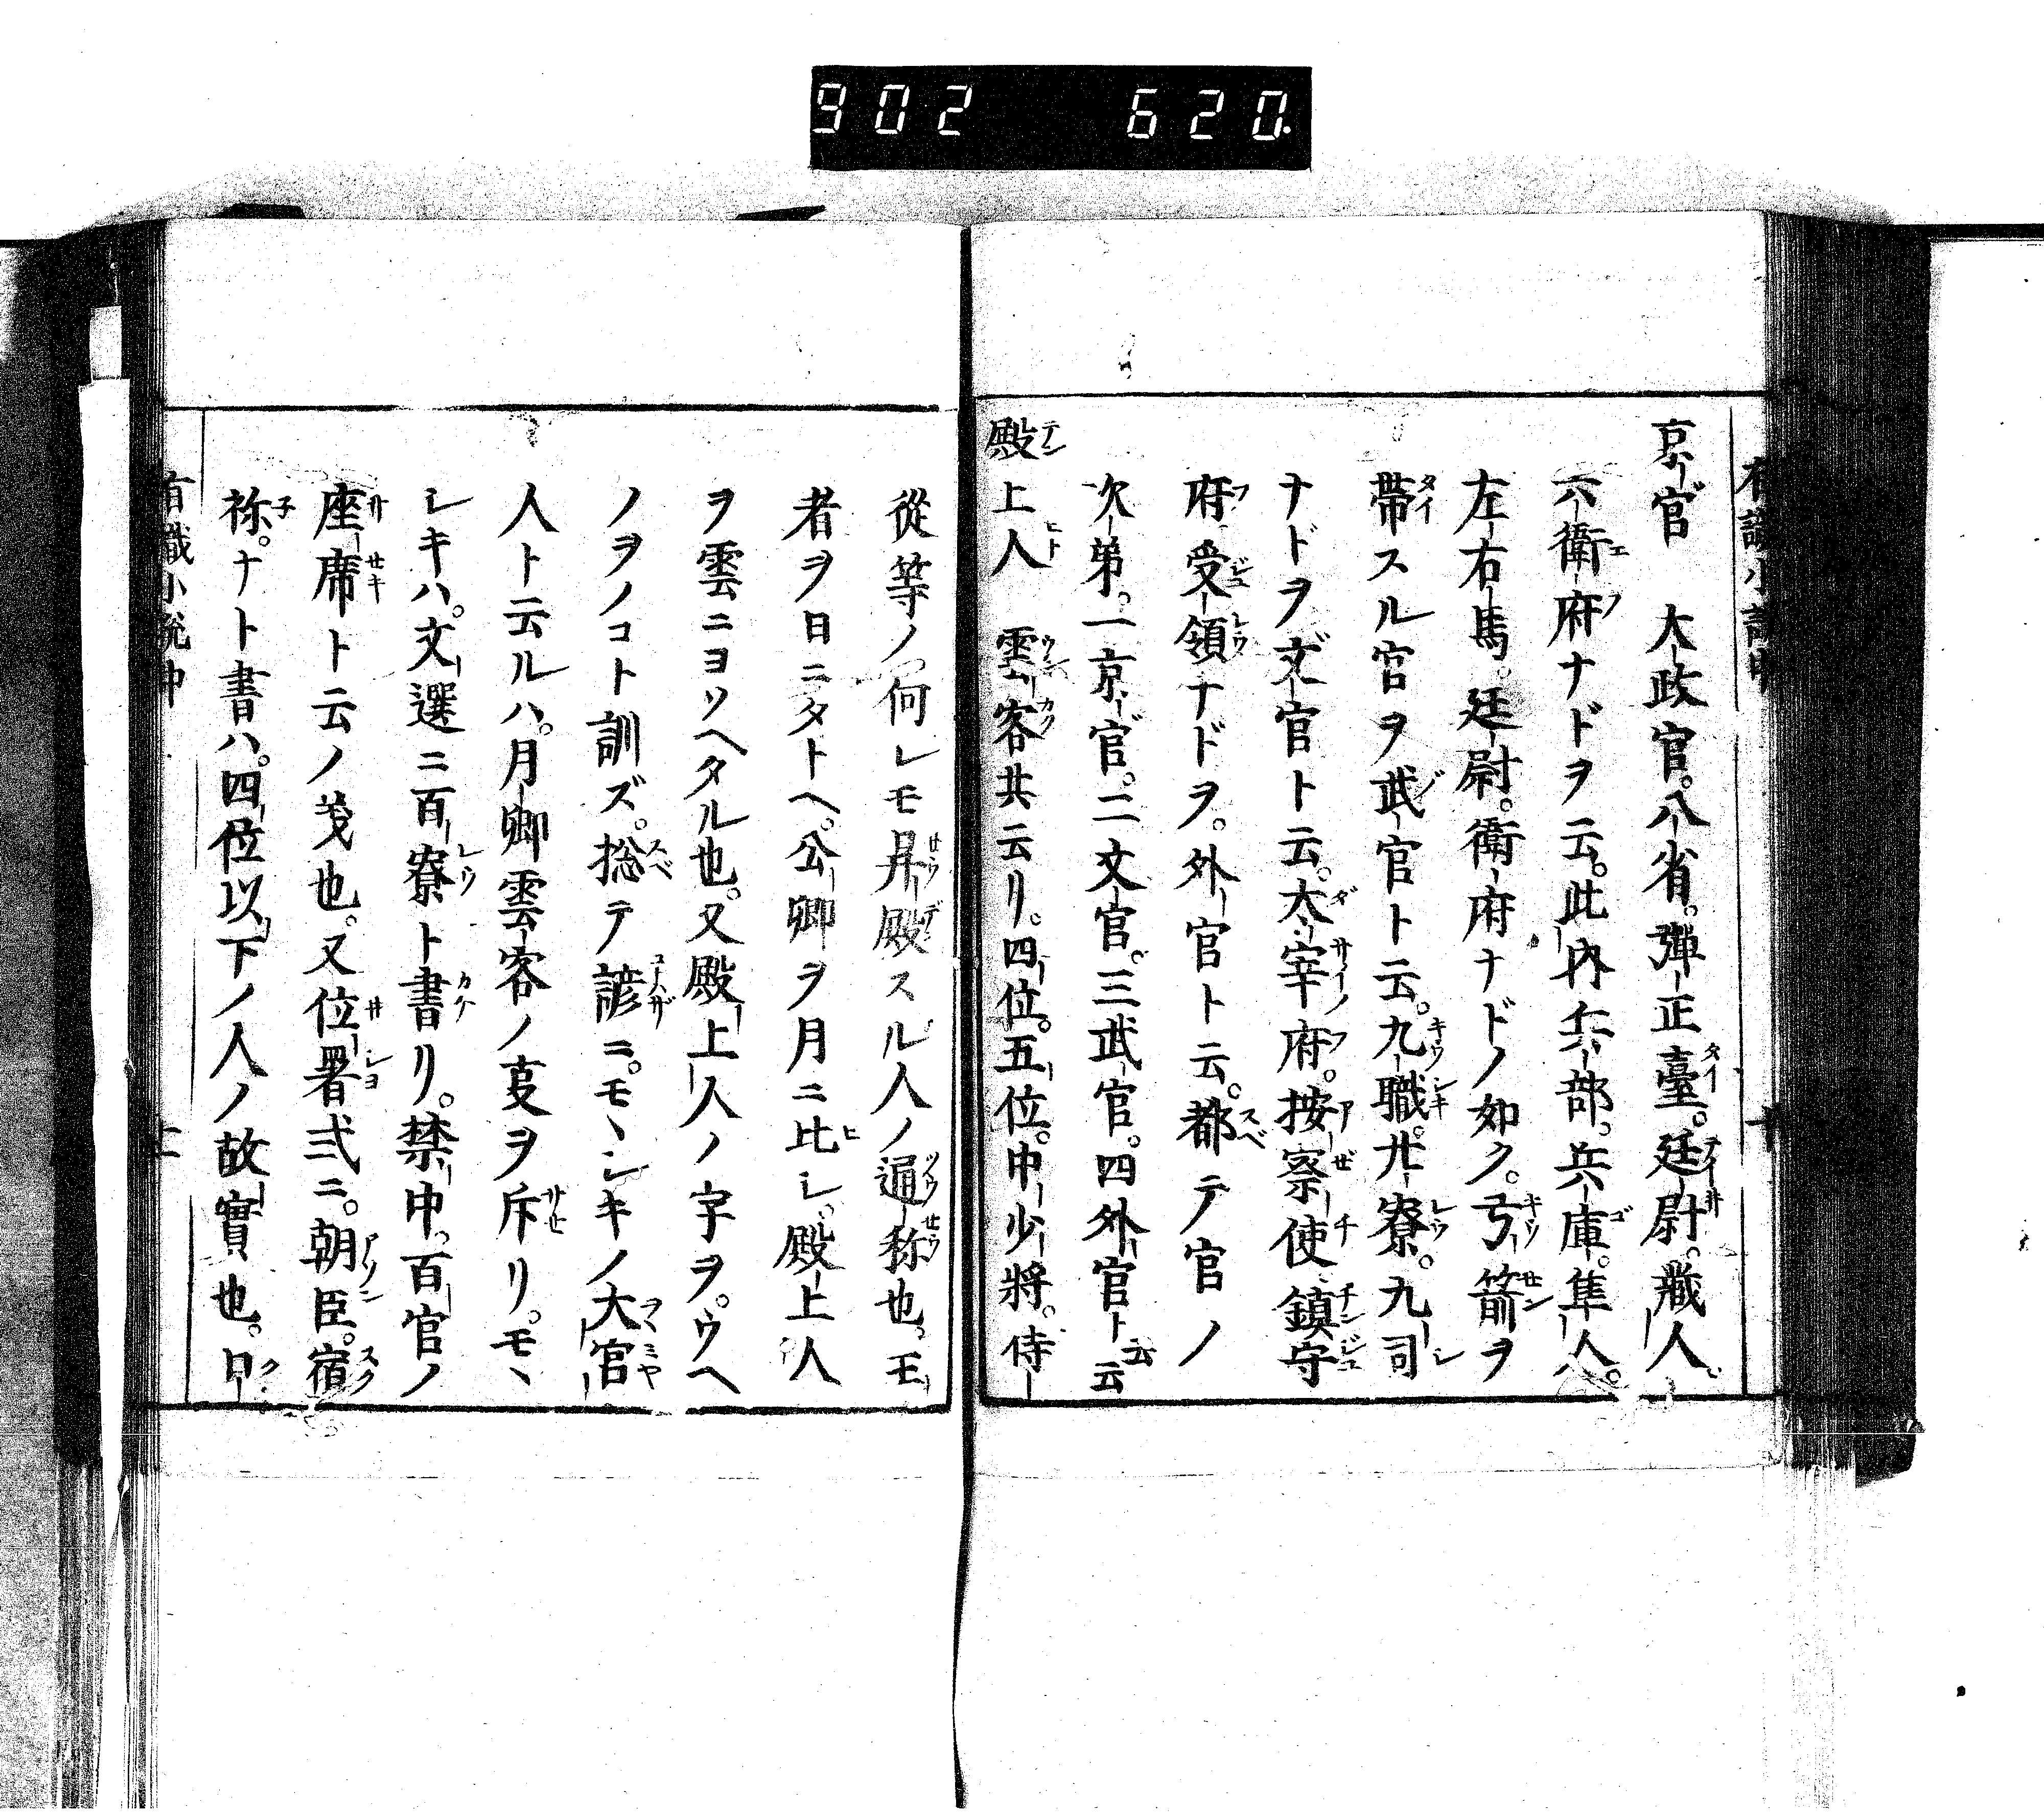 902 620.
京官　大政官。八省。彈正臺。廷尉。藏人。
六衛府ナドヲ云。此内兵部。兵庫。隼人。
左右馬。廷尉。衛府ナドノ如ク。弓箭ヲ
帶スル官ヲ武官ト云。九職。廿寮。九司
ナドヲ文官ト云。大宰府。按察使。鎮守
府。受領ナドヲ。外官ト云。都テ官ノ
次第。一京官。二文官。三武官。四外官ト云云
殿上人　雲客共云リ。四位。五位。中少將。侍
從等ノ何レモ昇殿スル人ノ通称也。モ
者ヲ日ニタトヘ。公卿ヲ月ニ比シ。殿上人
ヲ雲ニヨソヘタル也。又殿上人ノ字ヲ。ウヘ
ノヲノコト訓ズ。捴テ諺ニ。モヽシキノ大宮
人ト云ルハ。月卿雲客ノ叓ヲ斥リ。モヽ
シキハ。文選ニ百寮ト書リ。禁中百官ノ
座席ト云ノ茂也。又位署弐ニ。朝臣。宿
祢。ナト書ハ。四位以下ノ人ノ故實也。曰
有職小說中